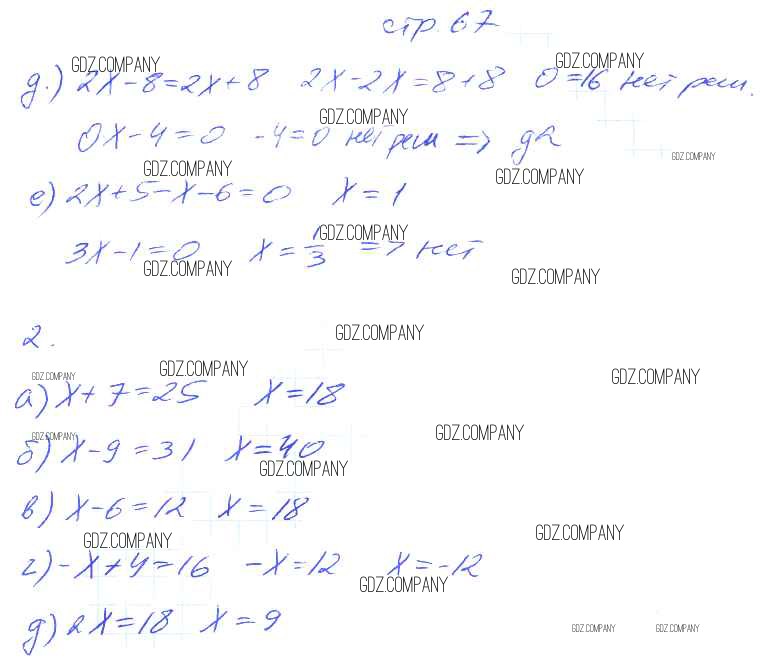 стр. 67
GDZ.COMPANY GDZ.COMPANY
д.) 2x-8=2x+8 2x-2x=8+8 0=16 нет реш.
GDZ.COMPANY
0x-4=0 -4=0 нет реш => да
GDZ.COMPANY
GDZ.COMPANY GDZ.COMPANY
е) 2x+5-x-6=0 x=1
GDZ.COMPANY
3x-1=0 x=1/3 => нет
GDZ.COMPANY GDZ.COMPANY
2.
GDZ.COMPANY
GDZ.COMPANY GDZ.COMPANY GDZ.COMPANY
а) x+7=25 x=18
GDZ.COMPANY GDZ.COMPANY
б) x-9=31 x=40
GDZ.COMPANY
в) x-6=12 x=18
GDZ.COMPANY GDZ.COMPANY
г) -x+4=16 -x=12 x=-12
GDZ.COMPANY
д) 2x=18 x=9
GDZ.COMPANY GDZ.COMPANY